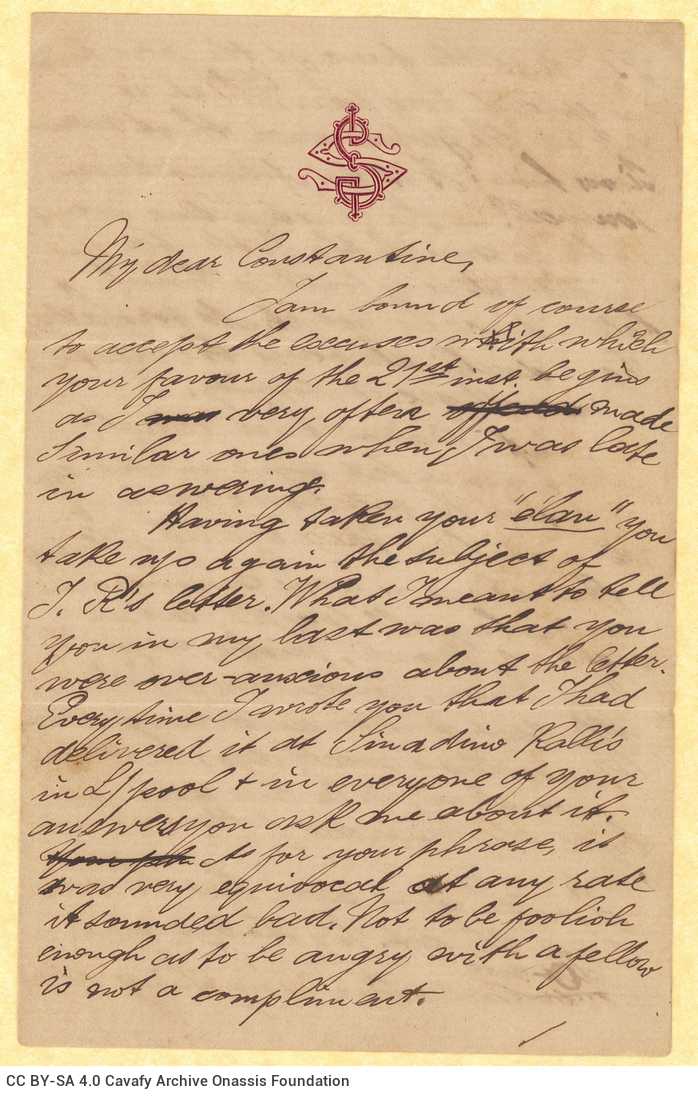 My dear Constantine,
I am bound of course
to accept the excuses with which
your favour of the 21st inst. begins
as I was very often made
similar ones when I was late
in aswering.
Having taken your "élan" you
take up again the subject of
J. R's letter. What I meant to tell
you in my last was that you
were over-anxious about the letter.
Every time I wrote you that I had
delivered it at Sinadino Ralli's
in L/pool & in everyone of your
answers you ask me about it.
As for your phrase, it
was very equivocal at any rate
it sounded bad. Not to be foolish
enough as to be angry with a fellow
is not a compliment.
CC BY-SA 4.0 Cavafy Archive Onassis Foundation